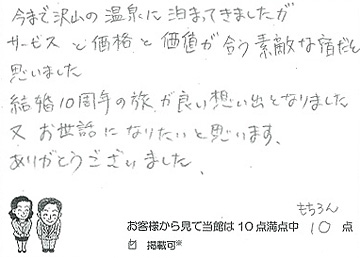 今まで沢山の温泉に泊まってきましたが
サービスと価格と価値が合う素敵な宿だと
思いました
結婚10周年の旅が良い想い出となりました
又お世話になりたいと思います、
ありがとうございました、
もちろん
お客様から見て当館は10点満点中 10 点
掲載可※